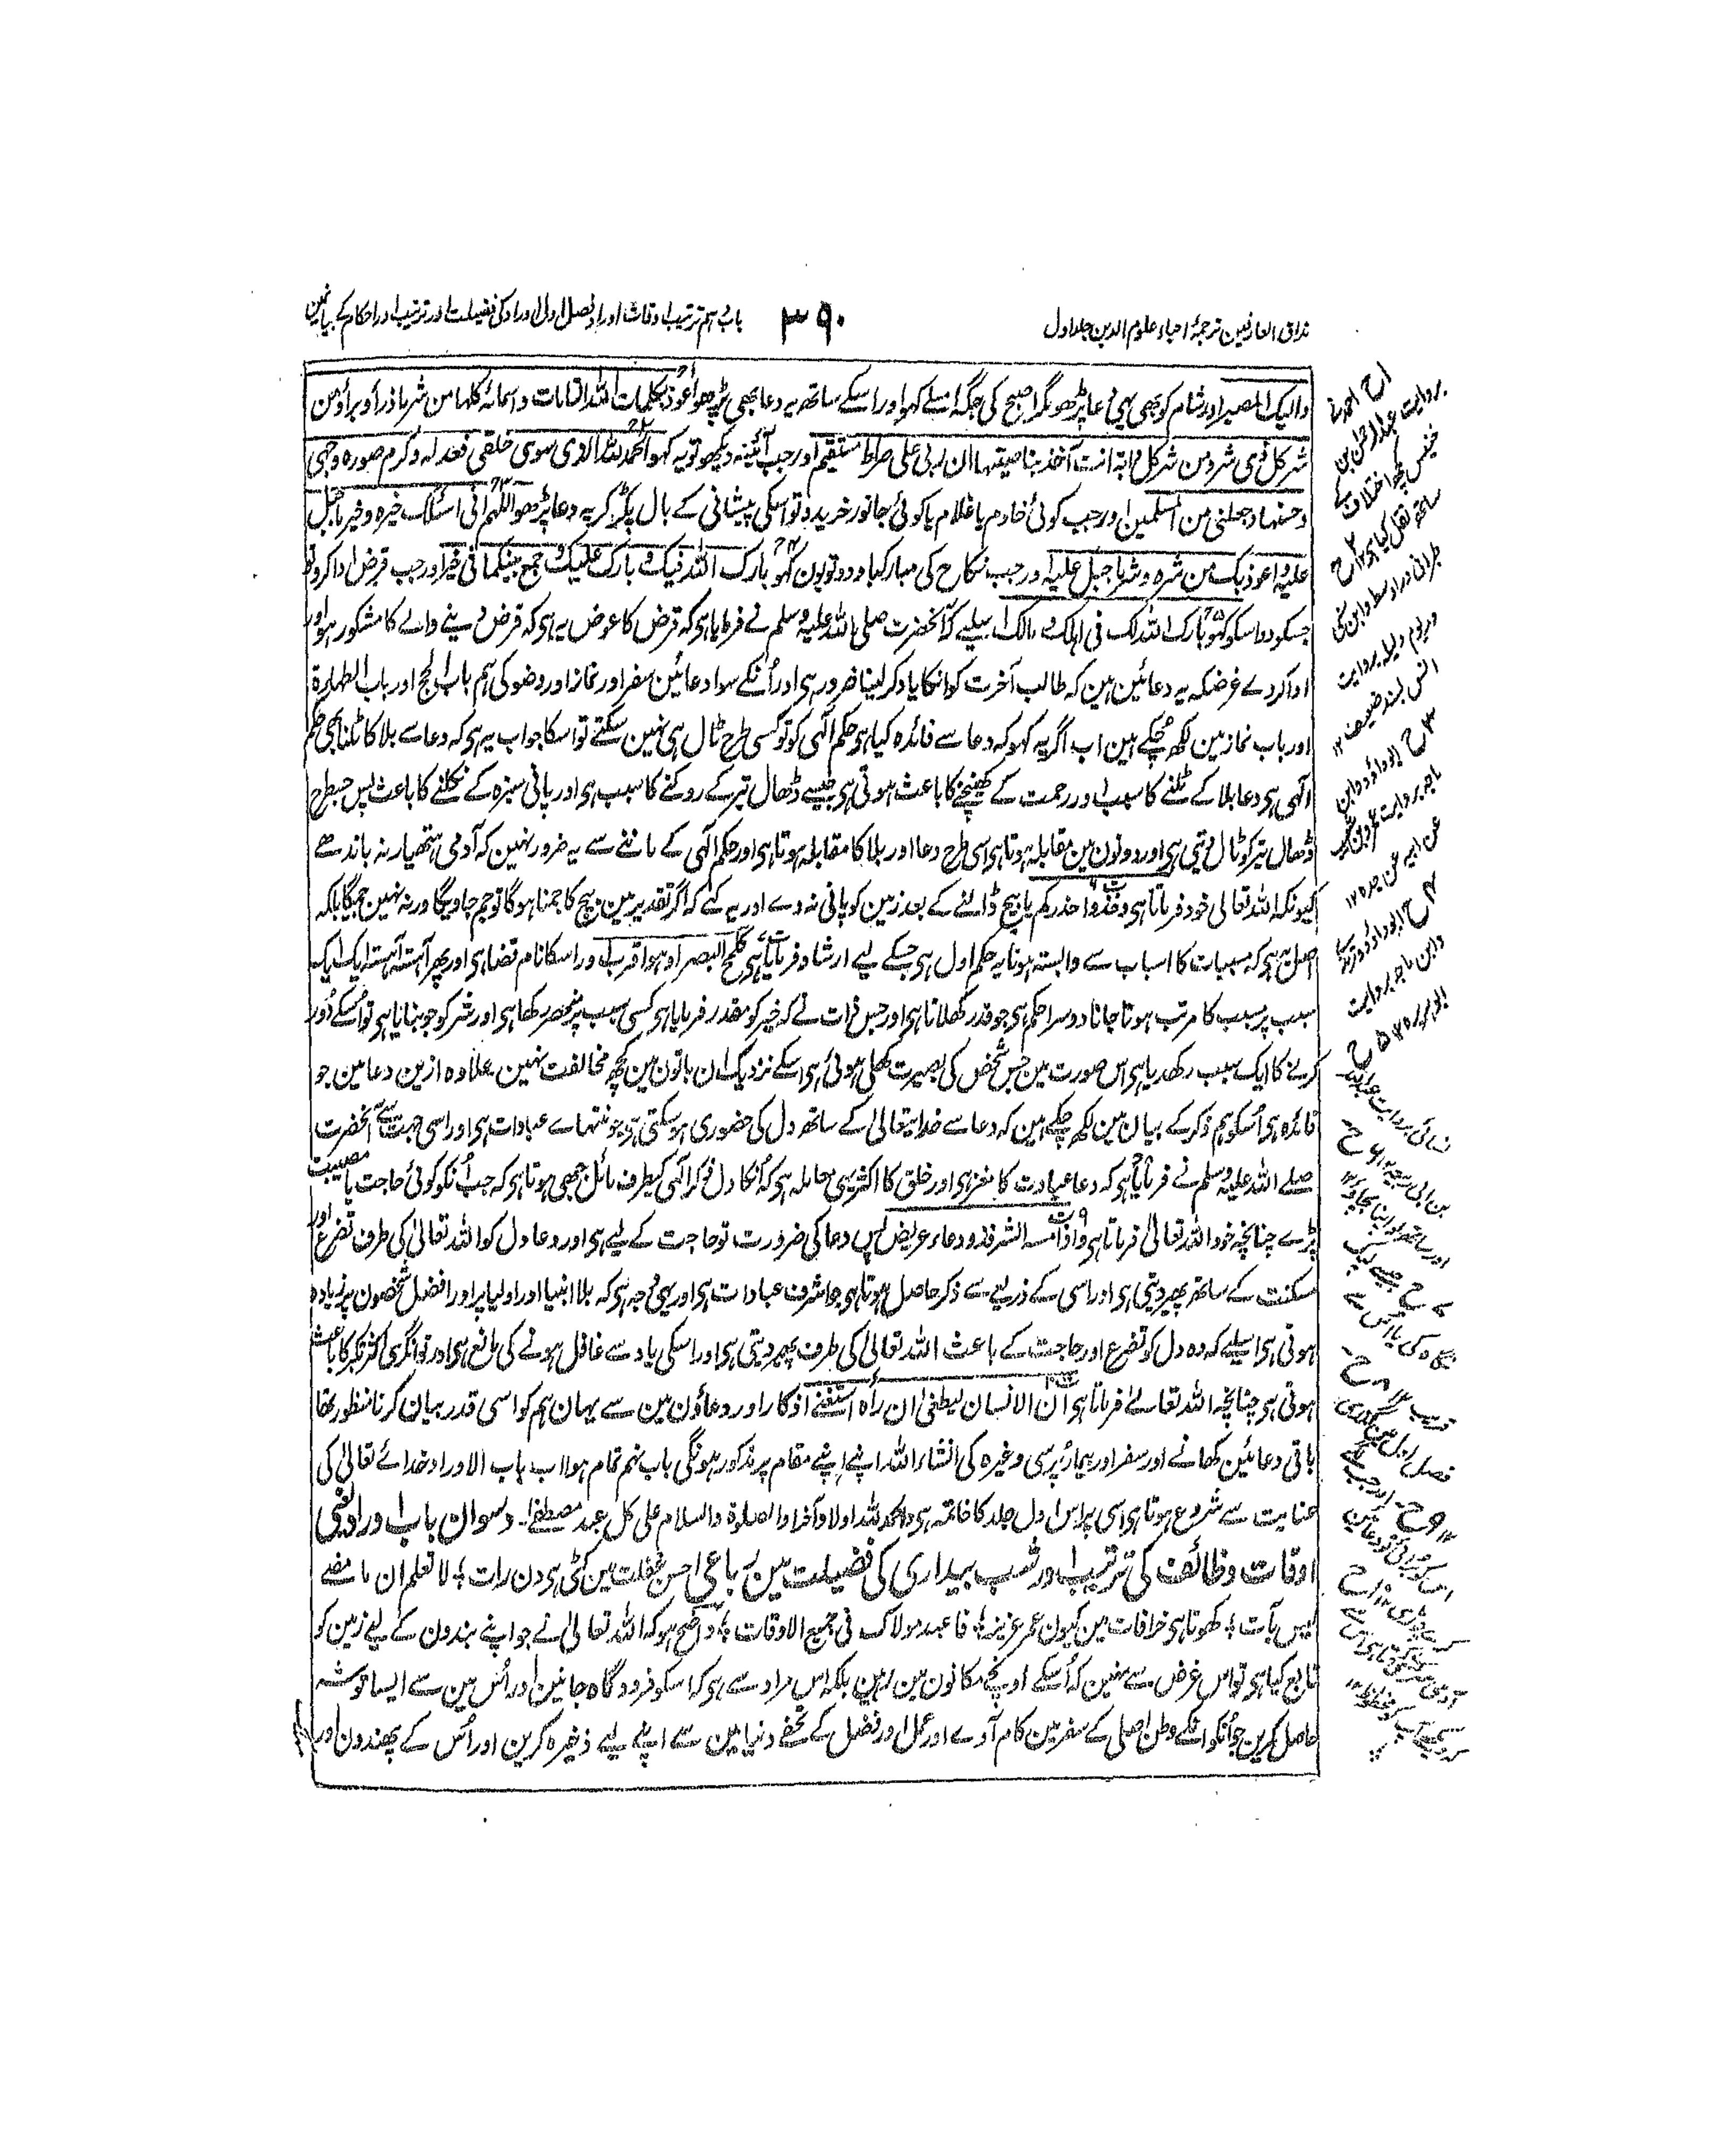 مذاق العارفین ترجمۂ احیاء علوم الدین جلد اول
۳۹۰
باب دہم ترتیب اوقات اوراد فصل اول اوراد کی فضیلت اور ترتیب اور احکام کے بیان مین
والیک المصیر اور شام کو بھی یہی دعا پڑھو مگر اصبح کی جگہ امسے کہو اور اسکے ساتھ یہ دعا بھی پڑھو اعوذ بکلمات اللہ التامات و اسمائہ کلہا من شر ما ذرأ و برأ و من
شر کل ذی شر و من شر کل دابۃ انت آخذ بناصیتہا ان ربی علی صراط مستقیم اور جب آئینہ دیکھو تو یہ کہو الحمد للہ الذی سوی خلقی فعدلہ و کرم صورہ وجہی
و حسنہا و جعلنی من المسلمین اور جب کوئی خادم یا غلام یا کوئی جانور خریدو تو اسکی پیشانی کے بال پکڑ کر یہ دعا پڑھو اللہم انی اسئلک خیرہ و خیر ما جبل
علیہ و اعوذ بک من شرہ و شر ما جبل علیہ اور جب نکاح کی مبارکباد دو تو یون کہو بارک اللہ فیک و بارک علیک و جمع بینکما فی خیر اور جب قرض ادا کرو تو
جسکو دو اسکو کہو بارک اللہ لک فی اہلک و مالک اسلیے کہ آنحضرت صلی اللہ علیہ وسلم نے فرمایا ہی کہ قرض کا عوض یہ ہی کہ قرض دینے والے کا مشکور ہو اور
ادا کردے غرضکہ یہ دعائین ہین کہ طالب آخرت کو انکا یاد کر لینا ضرور ہی اور اُنکے سوا دعائین سفر اور نماز اور وضو کی ہم باب الحج اور باب الطہارۃ
اور باب نماز مین لکھ چُکے ہین اب اگر یہ کہو کہ دعا سے فائدہ کیا ہی حکم الٰہی کو تو کسی طرح ٹال ہی نہین سکتے تو اسکا جواب یہ ہی کہ دعا سے بلا کا ٹلنا بھی حکم
الٰہی ہی دعا بلا کے ٹلنے کا سبب اور رحمت کے کھینچنے کا باعث ہوتی ہی جیسے ڈھال تیر کے روکنے کا سبب ہی اور پانی سبزہ کے نکلنے کا باعث پس جسطرح
ڈھال تیر کو ٹال دیتی ہی اور دونون مین مقابلہ ہوتا ہی اسی طرح دعا اور بلا کا مقابلہ ہوتا ہی اور حکم الٰہی کے ماننے سے یہ ضرور نہین کہ آدمی ہتھیار نہ باندھے
کیونکہ اللہ تعالی خود فرماتا ہی و خذوا حذرکم یا بیج ڈالنے کے بعد زمین کو پانی نہ دے اور یہ کہے کہ اگر تقدیر مین بیج کا جمنا ہوگا تو جم جاویگا ورنہ نہین جمیگا بلکہ
اصل یہ ہی کہ مسببات کا اسباب سے وابستہ ہونا یہ حکم اول ہی جسکے لیے ارشاد فرمایا ہی کلمح البصر او ہو اقرب اور اسکا نام قضا ہی اور پھر آہستہ آہستہ ایک ایک
سبب پر سبب کا مرتب ہوتا جانا دوسرا حکم ہی جو قدر کہلاتا ہی اور جس ذات نے کہ خیر کو مقدر فرمایا ہی کسی سبب پر منحصر رکھا ہی اور شر کو جو بنایا ہی تو اُسکے دُور
کرنے کا ایک سبب رکھدیا ہی اس صورت مین جس شخص کی بصیرت کھلی ہوئی ہی اسکے نزدیک ان باتون مین کچھ مخالفت نہین علاوہ ازین دعا مین جو
فائدہ ہی اُسکو ہم ذکر کے بیان مین لکھ چکے ہین کہ دعا سے خدا یتعالی کے ساتھ دل کی حضوری ہوسکتی ہی جو منتہاے عبادات ہی اور اسی جہت سے آنحضرت
صلے اللہ علیہ وسلم نے فرمایا ہی کہ دعا عبادت کا مغز ہی اور خلق کا اکثر یہی معاملہ ہی کہ اُنکا دل ذکر الٰہی کیطرف مائل جبھی ہوتا ہی کہ جب اُنکو کوئی حاجت یا مصیبت
پڑے چنانچہ خود اللہ تعالی فرماتا ہی و اذا مسہ الشر فذو دعاء عریض پس دعا کی ضرورت تو حاجت کے لیے ہی اور دعا دل کو اللہ تعالی کی طرف تضرع اور
مسکنت کے ساتھ پھیر دیتی ہی اور اسی کے ذریعے سے ذکر حاصل ہوتا ہی جو اشرف عبادات ہی اور یہی وجہ ہی کہ بلا انبیا اور اولیا پر اور افضل شخصون پر زیادہ
ہوتی ہی اسلیے کہ وہ دل کو تضرع اور حاجت کے باعث اللہ تعالی کی طرف پھیر دیتی ہی اور اسکی یاد سے غافل ہونے کی مانع ہی اور توانگری اکثر تکبر کا باعث
ہوتی ہی چنانچہ اللہ تعالے فرماتا ہی ان الانسان لیطغی ان راہ استغنے اذکار اور دعاؤن مین سے یہان ہم کو اسی قدر بیان کرنا منظور تھا
باقی دعائین کھانے اور سفر اور بیمار پرسی وغیرہ کی انشاء اللہ اپنے اپنے مقام پر مذکور ہونگی باب نہم تمام ہوا اب باب الاوراد خدائے تعالی کی
عنایت سے شروع ہوتا ہی اسی پر اس اول جلد کا خاتمہ ہی والحمد للہ اولا و آخرا والصلوۃ والسلام علی کل عبد مصطفے۔ دسوان باب اوراد یعنی
اوقات وظائف کی ترتیب اور شب بیداری کی فضیلت مین رباعی احسن غفلت مین کٹی ہی دن رات ؛ لا تعلم ان ما مضے
لیس بآت ؛ کھوتا ہی خرافات مین کیون عمر عزیز ؛ فاعبد مولاک فی جمیع الاوقات ؛ واضح ہو کہ اللہ تعالی نے جو اپنے بندون کے لیے زمین کو
تابع کیا ہی تو اس غرض سے نہین کہ اُسکے اونچے مکانون مین رہین بلکہ اس مراد سے ہی کہ اسکو فرودگاہ جانین اور اُس مین سے ایسا توشہ
حاصل کرین جو اُنکو انکے وطن اصلی کے سفر مین کام آوے اور عمل اور فضل کے تحفے دنیا مین سے اپنے لیے ذخیرہ کرین اور اُس کے پھندون اور
بروایت عبد الرحمن بن
ساتھ نقل کیا ہی ۱۲
طبرانی در اوسط و ابن سنی
انس بسند ضعیف ۱۲
۳ ح ابو داؤد و ابن
ماجہ بروایت عمرو بن شعیب
عن ابیہ عن جدہ ۱۲
۴ ح ابو داؤد و ترمذی
و ابن ماجہ بروایت
ابو ہریرہ ۱۲ ۵ ح